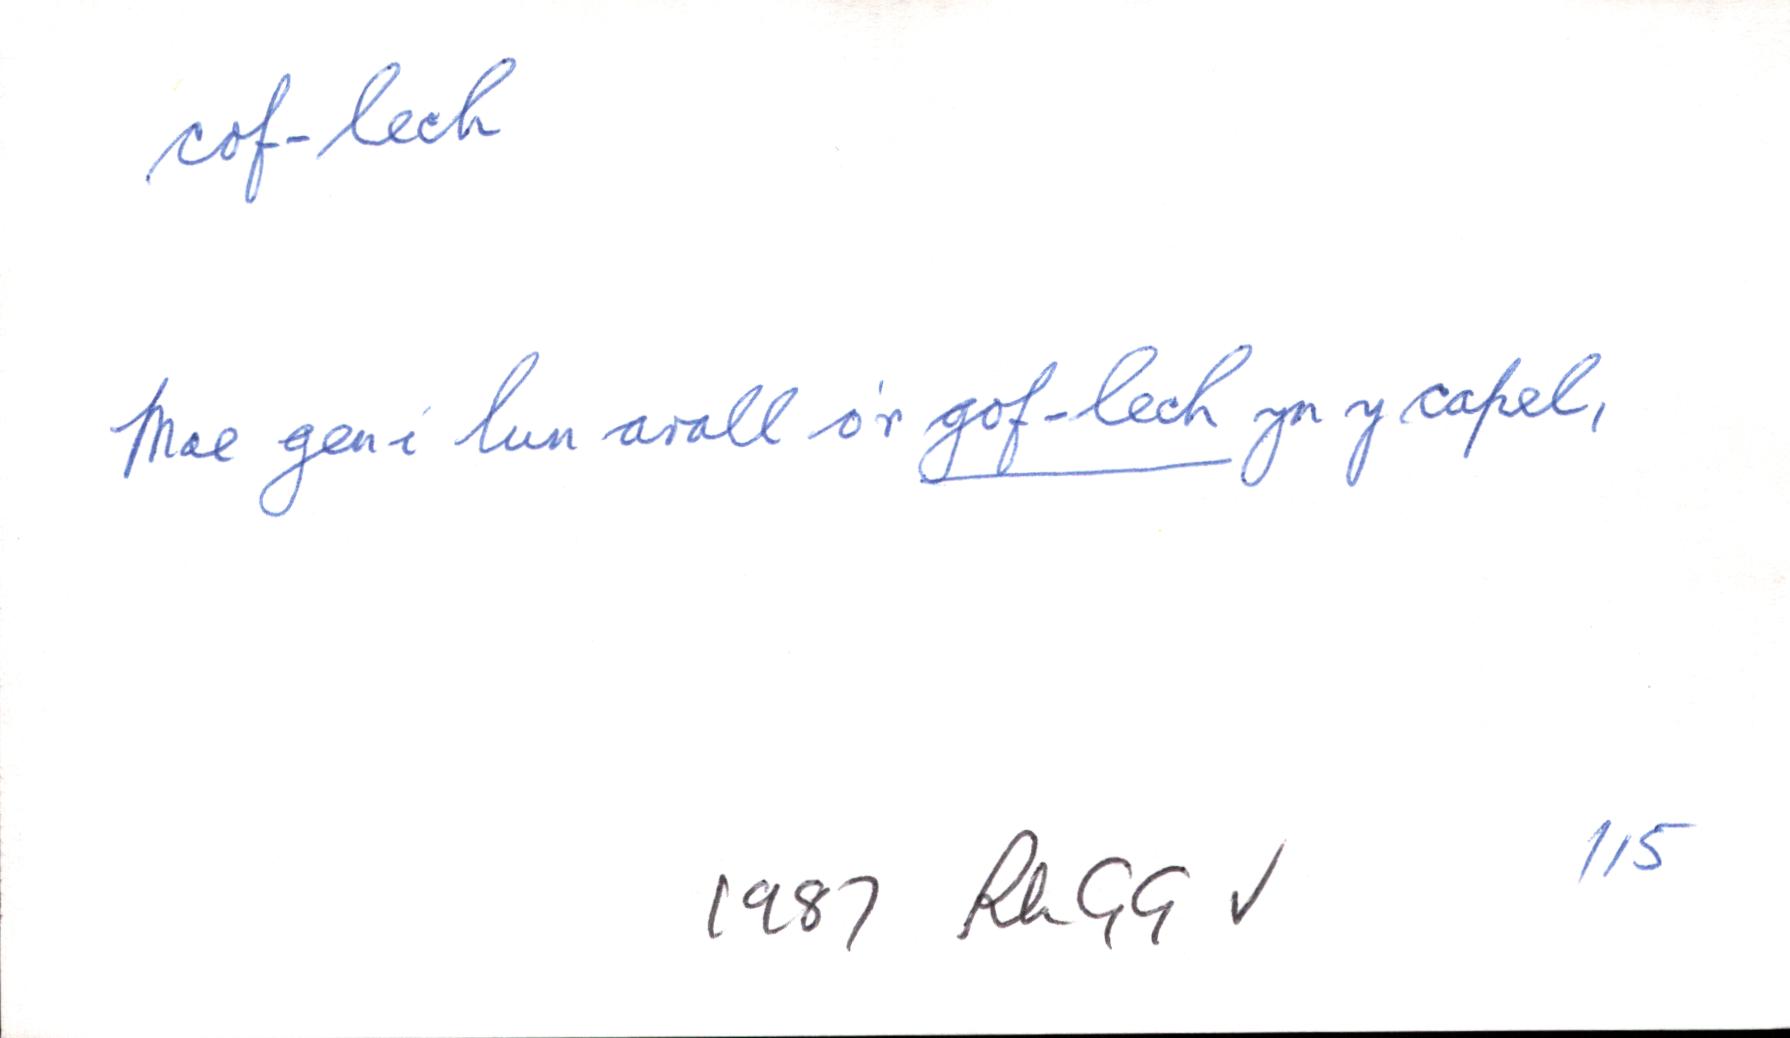 cof-lech
Mae gen i lun arall o'r gof-lech yn y capel,
115
1987 Rh GG V